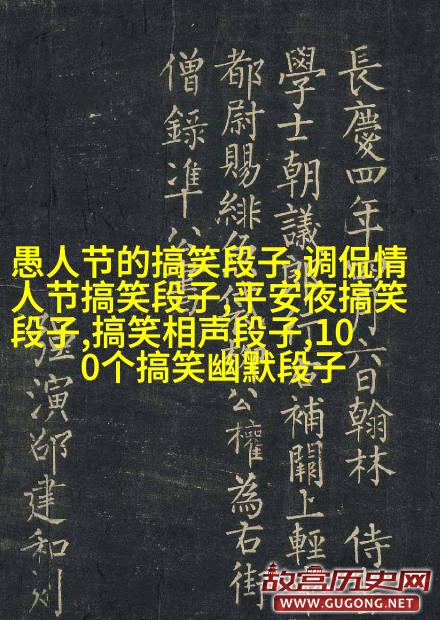 愚人节的搞笑段子,调侃情
人节搞笑段子,平安夜搞笑
段子,搞笑相声段子,10
0个搞笑幽默段子
長慶四年月六日翰林 侍
學士朝議補闕上輕
都尉賜緋公權為右街
僧錄準公
強演邵建和刻
故宫历史网
WWW.GUGONG.NET